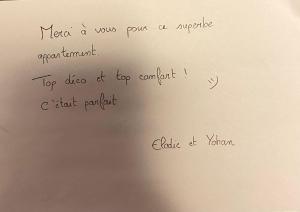 Merci à vous pour ce superbe
appartement.
Top déco et top confort !
C'était parfait :)
Elodie et Yohan